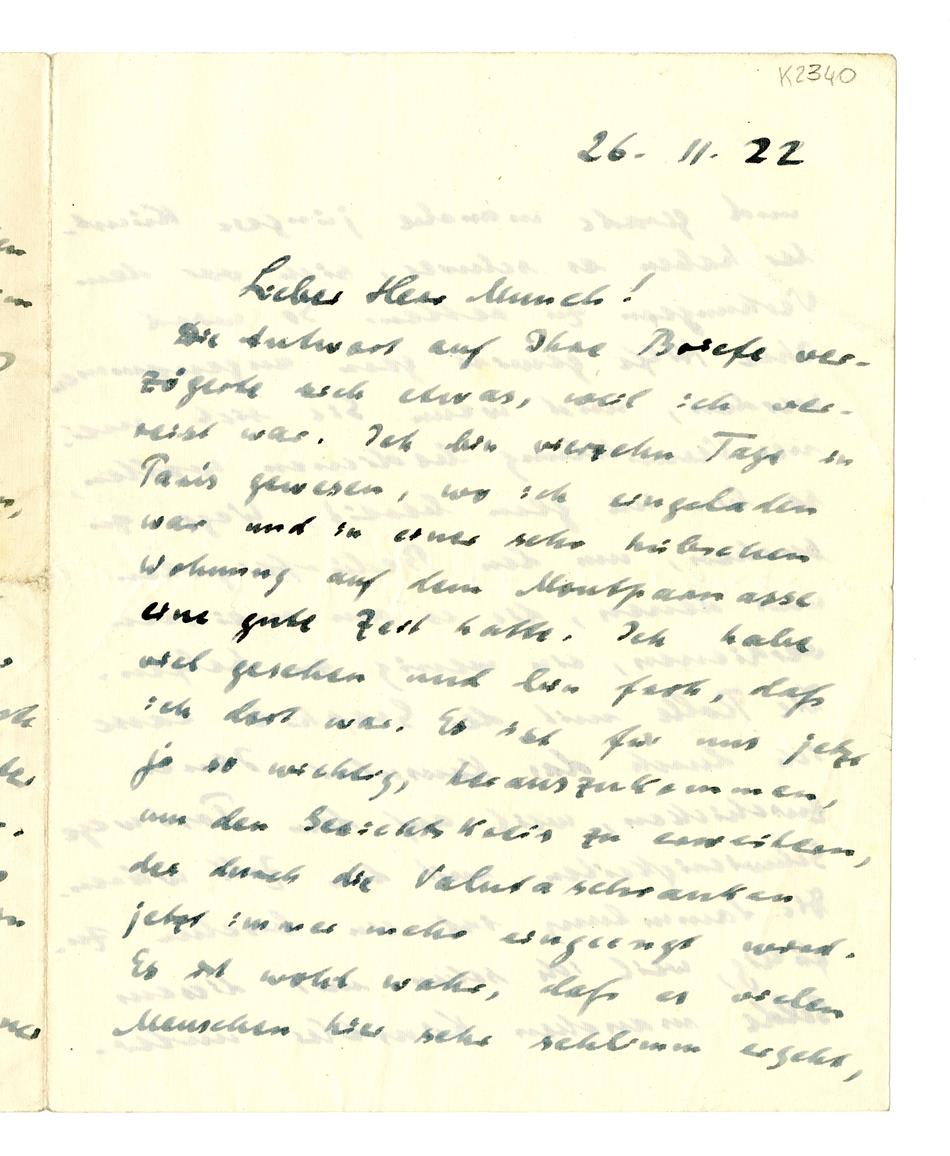 K2340
26. 11. 22
Lieber Herr Munch!
Die Antwort auf Ihre Briefe ver-
zögerte sich etwas, weil ich ver-
reist war. Ich bin vierzehn Tage in
Paris gewesen, wo ich eingeladen
war und in einer sehr hübschen
Wohnung auf dem Montparnasse
eine gute Zeit hatte. Ich habe
viel gesehen und bin froh, daſs
ich dort war. Es ist für uns jetzt
ja so wichtig, herauszukommen,
um den Gesichtskreis zu erweitern,
der durch die Valutaschranken
jetzt immer mehr eingeengt wird.
Es ist wohl wahr, daſs es vielen
Menschen hier sehr schlimm ergeht,